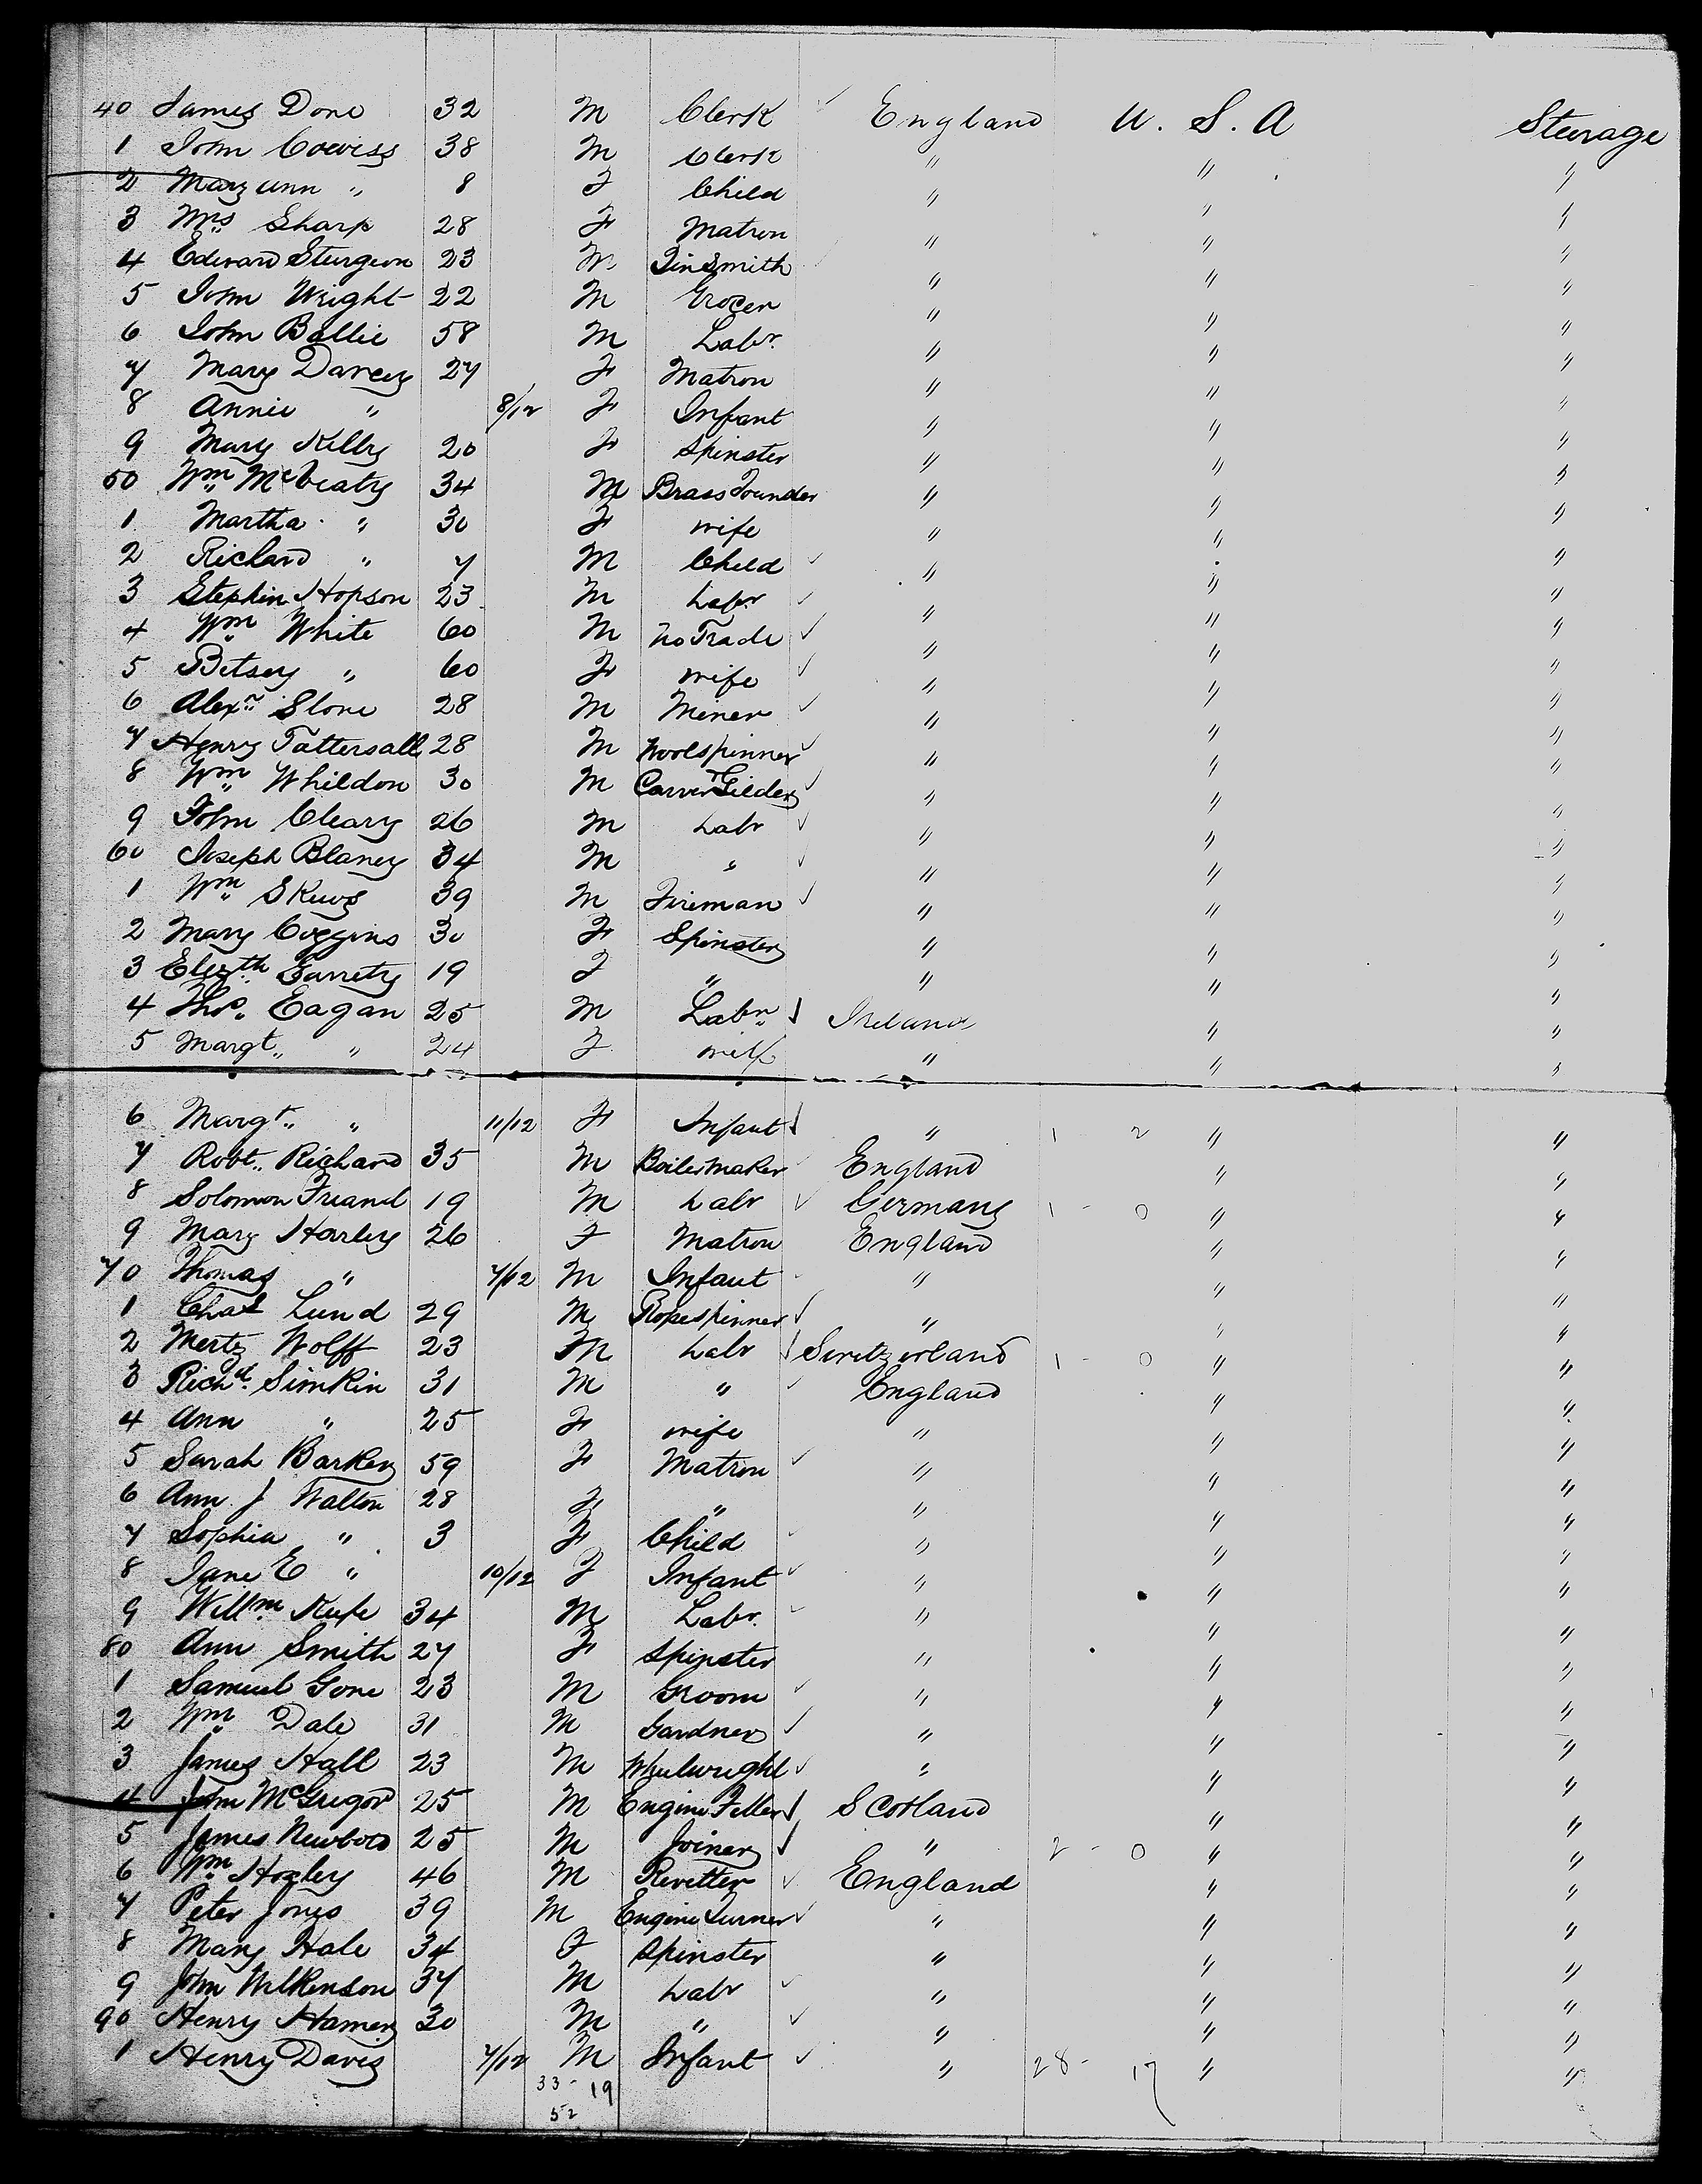 40 James Done 32 M Clerk ✓ England U. S. A Steerage
1 John Cowiss 38 M Clerk " " "
2 Mary Ann " 8 F Child " " "
3 Mrs Sharp 28 F Matron " " "
4 Edward Sturgeon 23 M Tinsmith " " "
5 John Wright 22 M Grocer " " "
6 John Ballie 58 M Labr. " " "
7 Mary Darcey 27 F Matron " " "
8 Annie " 8/12 F Infant " " "
9 Mary Kelly 20 F Spinster " " "
50 Wm 34 M Brass Founder " " "
1 Martha " 30 F wife " " "
2 Richard " 7 M Child ✓ " " "
3 Stephen Hopson 23 M Labr ✓ " " "
4 Wm White 60 M No Trade ✓ " " "
5 Betsey " 60 F wife ✓ " " "
6 Alexr Slone 28 M Miner ✓ " " "
7 Henry Tattersall 28 M Woolspinner ✓ " " "
8 Wm Whildon 30 M Carver & Gilder ✓ " " "
9 John Cleary 26 M Labr ✓ " " "
60 Joseph Blaney 34 M " ✓ " " "
1 Wm 39 M Fireman ✓ " " "
2 Mary Coggins 30 F Spinster " " "
3 Elizth Garrety 19 F " " " "
4 Thos. Eagan 25 M Labr. ✓ Ireland " "
5 Margt. " 24 F wife " " "
6 Margt. " 11/12 F Infant ✓ " 1 2 " "
7 Robt. Richard 35 M Boilermaker ✓ England " "
8 Solomon Friand 19 M Labr ✓ Germany 1 - 0 " "
9 Mary Harley 26 F Matron England " "
70 Thomas " 7/12 M Infant ✓ " " "
1 Chas Lund 29 M Ropespinner ✓ " " "
2 Mertz Wolff 23 M Labr ✓ Switzerland 1 - 0 " "
3 Richd. Simkin 31 M " ✓ England " "
4 Ann " 25 F wife " " "
5 Sarah Barker 59 F Matron ✓ " " "
6 Ann J Walton 28 F " " " "
7 Sophia " 3 F Child ✓ " " "
8 Jane E " 10/12 F Infant ✓ " " "
9 Willm. 34 M Labr. ✓ " " "
80 Ann Smith 27 F Spinster " " "
1 Samuel Gore 23 M Groom ✓ " " "
2 Wm Dale 31 M Gardner ✓ " " "
3 James Hall 23 M Wheelwright ✓ " " "
4 John McGregor 25 M Engine Fitter ✓ Scotland " "
5 James Newbold 25 M Joiner ✓ " 2 - 0 " "
6 Wm Hoxley 46 M Revetter ✓ England " "
7 Peter Jones 39 M Engine Turner ✓ " " "
8 Mary Hale 34 F Spinster " " "
9 John Wilkenson 37 M Labr ✓ " " "
90 Henry Hamer 30 M " ✓ " " "
1 Henry Davis 7/12 M Infant ✓ " 28 - 17 " "
33 - 19
52